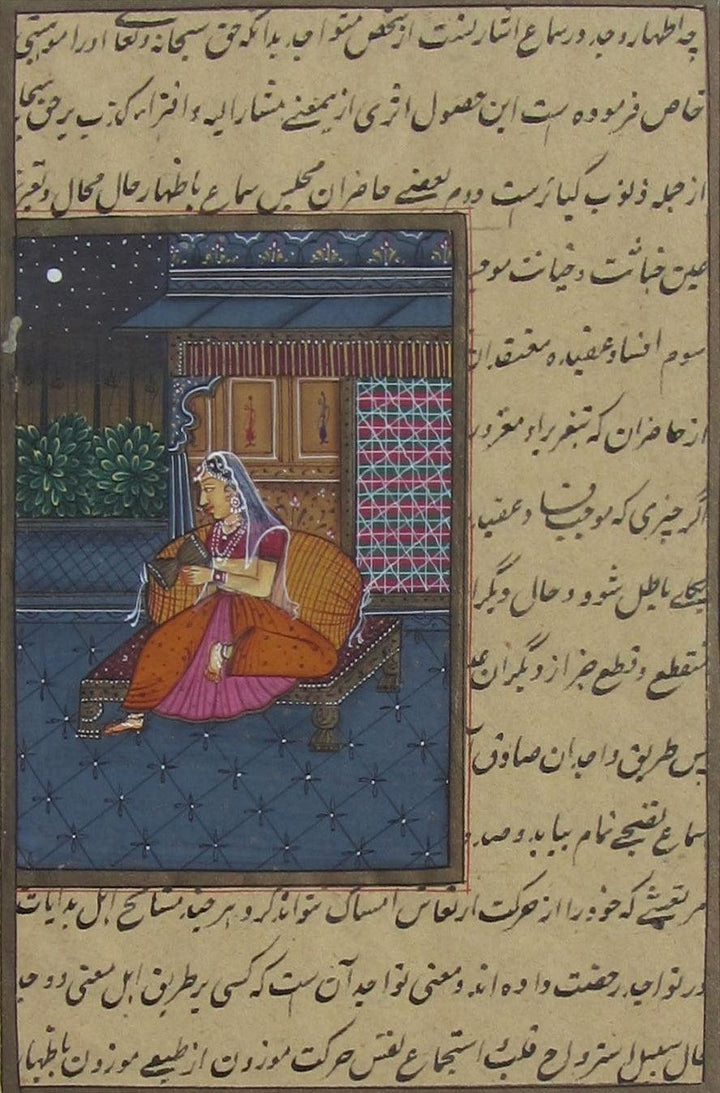 چه اظهار وجد در سماع اشارتست از شخص متواجد بدانکه حق سبحانه و تعالی او را موهبتی
خاص فرموده است این حصول اثری از یمعنے مشار الیه و افتراء کذب بر حق سبحا
از جمله ذنوب کبائرست دوم بعضے حاضران مجلس سماع باظهار حال محال و تغیر
عین خباثت و خیانت موجب
سوم افساد عقیده معتقدان
از حاضران که بتغریر او مغرور
اگر چیزی که موجب فسا و عقید
باطل شود و حال دیگرا
منقطع و قطع خیر از دیگران
پس طریق واجدان صادق
سماع تفتیحے تمام بیابد و صد و
مرتعشے که خود را از حرکت ارتعاش امساک نتواند کرد و هر چند مشائخ اهل بدایات
در تواجد رخصت داده اند و معنی تواجد آن ست که کسی بر طریق اهل معنی وجد
حال سبیل استرواح قلب استجماع نفس حرکت موزون از طبیعے موزون باظهار